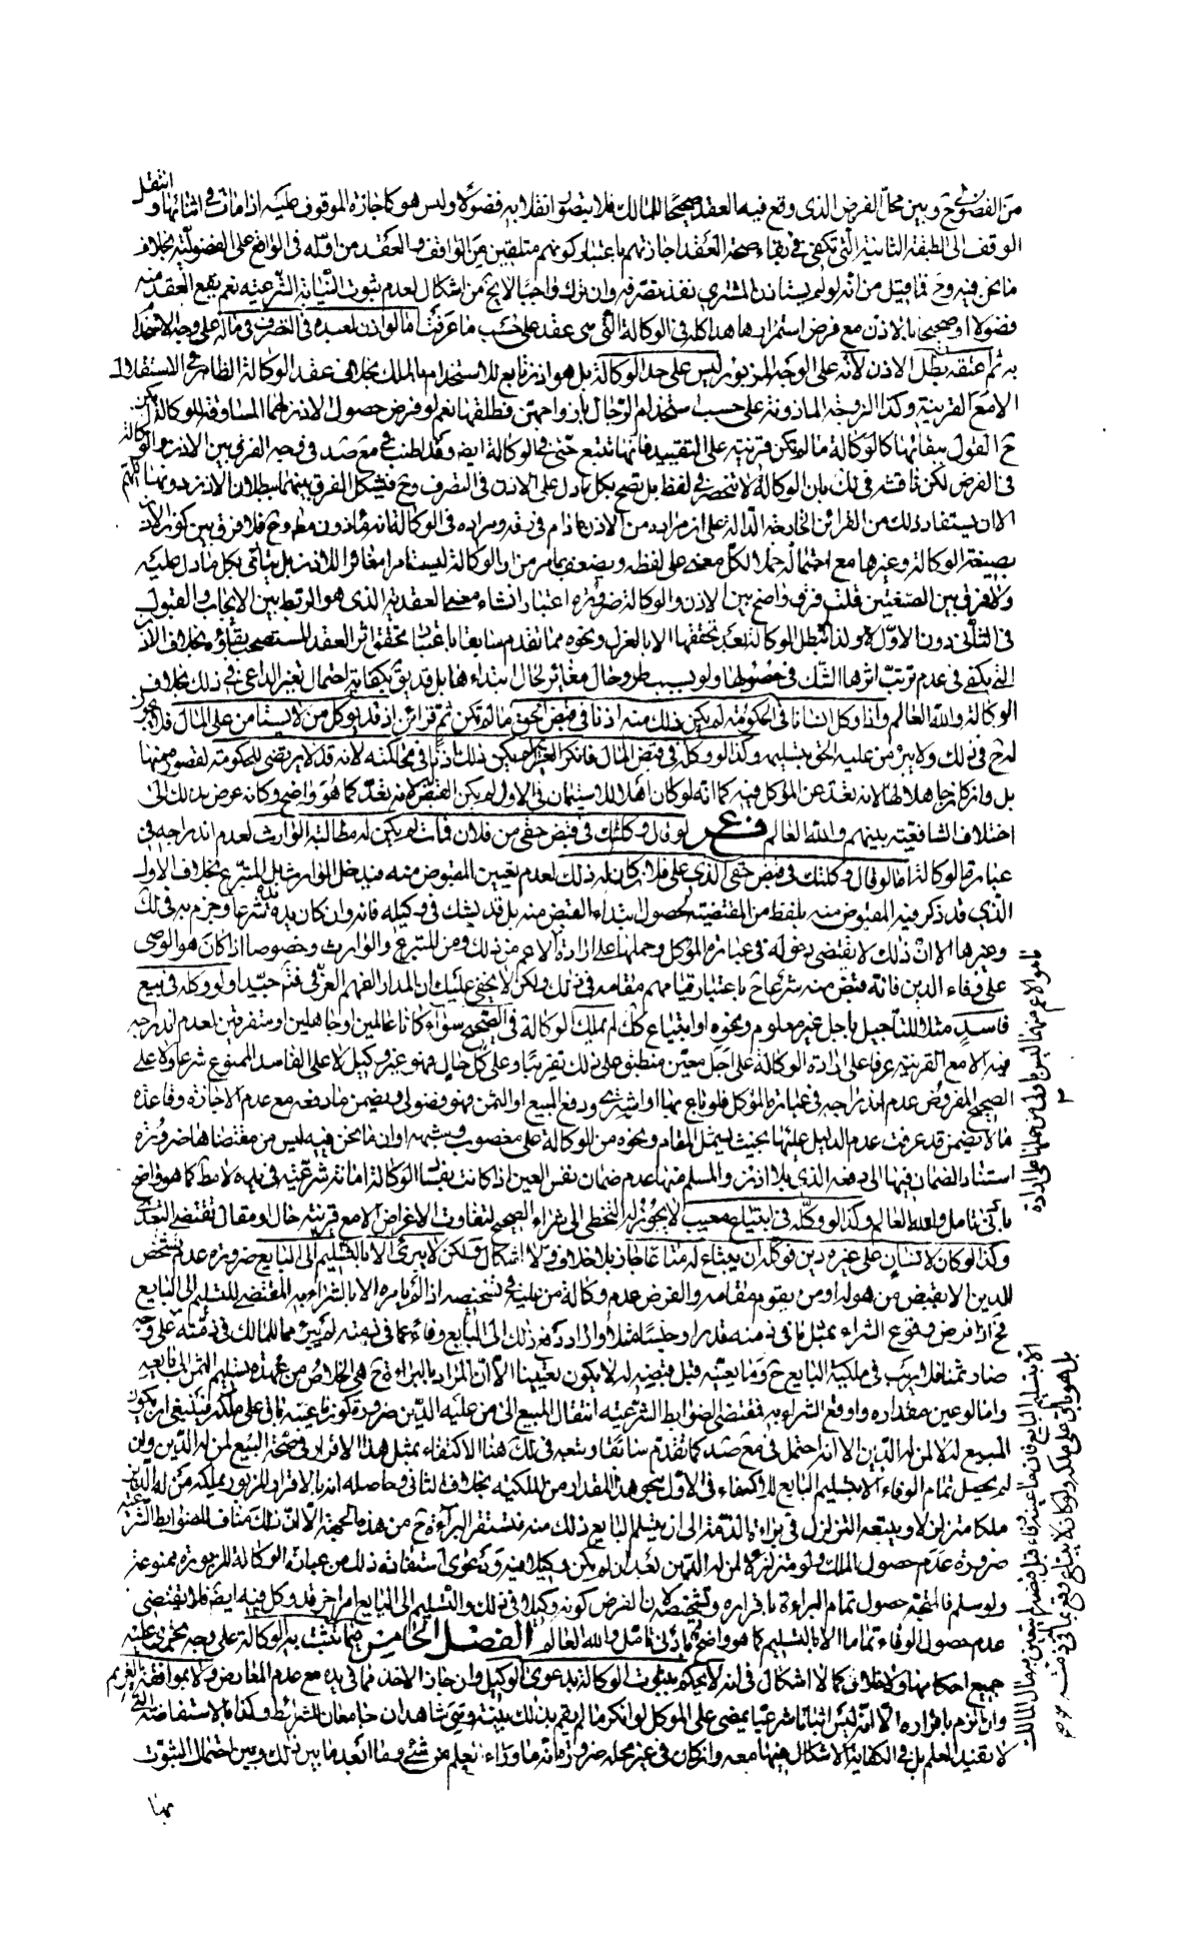 من الفضولي ح وبين محل الفرض الذي وقع فيه العقد صحيحا للمالك فلا يتصور انقلابه فضولا وليس هو كاجازة الموقوف عليه اذا مات في اثنائها وانتقل
الوقف الى الطبقة الثانية التي تكفي في بقاء صحة العقد اجازتهم باعتبار كونهم متلقين من الواقف والعقد من اوله في الواقع على الفضولية بخلاف
ما نحن فيه وح فما قيل من انه لو لم يستاذن المشتري نفذ تصرفه وان ترك واجبا لا يخ من اشكال لعدم ثبوت النيابة الشرعية نعم يقع العقد منه
فضولا او صحيحا بالاذن مع فرض استمرارها هذا كله في الوكالة التي هي عقد على حسب ما عرفت اما لو اذن لعبده في التصرف في ماله على وجه الاستخدام
به ثم اعتقه بطل الاذن لانه على الوجه المزبور ليس على حد الوكالة بل هو اذن تابع للاستخدام بالملك بخلاف عقد الوكالة الظاهر في الاستقلال
الا مع القرينة وكذا الزوجة الماذونة على حسب استخدام الرجال بازواجهم فطلقها نعم لو فرض حصول الاذن لهما المساوقة للوكالة
ح القول ببقائها كالوكالة ما لم تكن قرينة على التقييد فانها تتبع حتى في الوكالة ايضا وقد اطنب في مع صد في توجيه الفرق بين الاذن والوكالة
في الفرض لكن ناقشه في لك بان الوكالة لا تنحصر في لفظ بل تصح بكل ما دل على الاذن في التصرف وح فيشكل الفرق بينهما ببطلان الاذن دونها اللهم
الا ان يستفاد ذلك من القرائن الخارجة الدالة على ان مراده من الاذن ما دام في رقه ومراده في الوكالة انه ماذون مط وح فلا فرق بين كون الاذن
بصيغة الوكالة وغيرها مع احتماله حملا لكل معنى على لفظه ويضعف بما مر من ان الوكالة ليست امرا مغائرا للاذن بل تتادى بكل ما دل عليه
ولا فرق بين الصيغتين قلت فرق واضح بين الاذن والوكالة ضرورة اعتبار انشاء معنى العقدية الذي هو الربط بين الايجاب والقبول
في الثاني دون الاول ولذا لا تبطل الوكالة بعد تحققها الا بالعزل ونحوه مما تقدم سابقا باعتبار تحقق اثر العقد المستصحب بقاؤه بخلاف الاذن
التي يكفي في عدم ترتب اثرها الشك في حصولها ولو بسبب طرو حال مغائر لحال ابتداءها بل قد يق بكفاية احتمال تغير الداعي في ذلك بخلاف
الوكالة والله العالم واذا وكل انسانا في الحكومة لم يكن ذلك منه اذنا في قبض الحق ما لم تكن ثم قرائن اذ قد يوكل من لا يستامن على المال فلا يجوز
له ح في ذلك ولا يبرء من عليه الحق بتسليمه وكذا لو وكله في قبض المال فانكر الغريم لم يكن ذلك اذنا في محاكمته لانه قد لا يرتضي للحكومة لقصوره عنها
بل وان كان اهلا لها لانه بعد عن الموكل فيه كما انه لو كان اهلا للاستيمان في الاول لم يكن القبض لانه بعد كما هو واضح وكانه عرض بذلك الى
اختلاف الشافعية بينهم والله العالم فرع لو قال وكلتك في قبض حقي من فلان فمات لم يكن له مطالبة الوارث لعدم اندراجه في
عبارة الوكالة اما لو قال وكلتك في قبض حقي الذي على فلان كان له ذلك لعدم تعيين المقبوض منه فيدخل الوارث بل المتبرع بخلاف الاول
الذي قد ذكر فيه المقبوض منه بلفظ من المقتضية لحصول ابتداء القبض منه بل قد يشك في وكيله فانه وان كان يده يده شرعا وجزم به في لك
وغيرها الا ان ذلك لا يقتضي دخوله في عبارة الموكل وحملها على ارادة الاعم من ذلك ومن المتبرع والوارث وخصوصا اذا كان هو الوصي
على وفاء الدين فانه قبض منه شرعا ح باعتبار قيامهم مقامه في ذلك ولكن لا يخفى عليك ان المدار الفهم العرفي فتم جيدا ولو وكله في بيع
فاسد مثلا للتاجيل باجل غير معلوم ونحوه او ابتياع كك لم يملك الوكالة في الصحيح سواء كانا عالمين او جاهلين او متفرقين لعدم اندراجه
فيه الا مع القرينة عرفا على ارادة الوكالة على اجل معين منطبق على ذلك تقريبا وعلى كل حال فهو غير وكيل لا على الفاسد الممنوع شرعا ولا على
الصحيح المفروض عدم اندراجه في عبارة الموكل فلو باع بهما او اشترى ودفع المبيع او الثمن فهو فضولي ويضمن ما دفعه مع عدم الاجازة وقاعدة
ما لا يضمن قد عرفت عدم الدليل عليها بحيث يشمل المقام ونحوه من الوكالة على مغصوب وشبهه او ان ما نحن فيه ليس من مقتضاها ضرورة
استناد الضمان فيها الى دفعه الذي بلا اذن والمسلم منها عدم ضمان نفس العين اذا كانت بفساد الوكالة امانة شرعية في يده لا مط كما هو واضح
بادنى تامل والله العالم وكذا لو وكله في ابتياع معيب لا يجوز له التخطي الى شراء الصحيح لتفاوت الاغراض الا مع قرينة حال او مقال تقتضي التعدي
وكذا لو كان لانسان على غيره دين فوكله ان يبتاع له متاعا جاز بلا خلاف ولا اشكال ولكن لا يبرئ الا بالتسليم الى البايع ضرورة عدم تشخص
الدين الا بقبض من هو له او من يقوم مقامه والفرض عدم وكالة من عليه في تشخيصه اذ لم يامره الا بالشراء به المقتضي للتسليم الى البايع
فح اذا فرض وقوع الشراء بمثل ما في ذمته قدرا وجنسا مثلا واراد دفع ذلك الى البايع وفاء عما في ذمته لم يتعين مما للمالك في ذمته على وجه
صار ثمنا فلا ريب في ملكية البايع ح وما يعينه قبل قبضه له لا يكون تعيينا الا ان المراد بالبراءة ح هي الخلاص من عهدة تسليم الثمن لبايعه
واما لو عين مقداره واوقع الشراء به فمقتضى الضوابط الشرعية انتقال المبيع الى من عليه الدين ضرورة كون ما عينه باق على ملكه فينبغي ان يكون
المبيع له لا لمن له الدين الا انه احتمل في مع صد كما تقدم سابقا وتبعه في لك هنا الاكتفاء بمثل هذا الاقرار في صحة البيع لمن له الدين وان
لم يحصل تمام الوفاء الا بتسليم البايع للاكتفاء في الاول بنحو هذا المقدار من الملكية بخلاف الثاني وحاصله انه بالاقرار المزبور يملكه من له الدين
ملكا متزلزلا ويتبعه التزلزل في براءة الذمة الى ان يتسلم البايع ذلك منه فتستقر البراءة ح من هذه الجهة الا ان ذلك مناف للضوابط الشرعية
ضرورة عدم حصول الملك ولو متزلزلا لمن له الدين بعد ان لم يكن وكيلا فيه ودعوى استفادة ذلك من عبارة الوكالة المزبورة ممنوعة
ولو سلم فالمتجه حصول تمام البراءة بافرازه وتشخيصه لان الفرض كونه وكيلا في ذلك والتسليم الى البايع امر اخر قد وكل فيه ايضا فلا يقتضي
عدم حصول الوفاء تماما الا بالتسليم كما هو واضح بادنى تامل والله العالم الفصل الخامس فيما تثبت به الوكالة على وجه يجري عليه
جميع احكامها ولا خلاف كما لا اشكال في انه لا يحكم بثبوت الوكالة بدعوى الوكيل وان جاز الاخذ مما في يده مع عدم المعارض ولا بموافقة الغريم
وان الزم باقراره الا انه ليس اثباتا شرعيا يمضي على الموكل لو انكر ما لم يقم بذلك بينة وهي شاهدان جامعان للشرائط وكذا بالاستفاضة التي
لا تفيد العلم بل في الكفاية لا اشكال فيهما معه وان كان في غير محله ضرورة انه ما وراء العلم من شئ وما ابعد ما بين ذلك وبين احتمال الثبوت
بهما